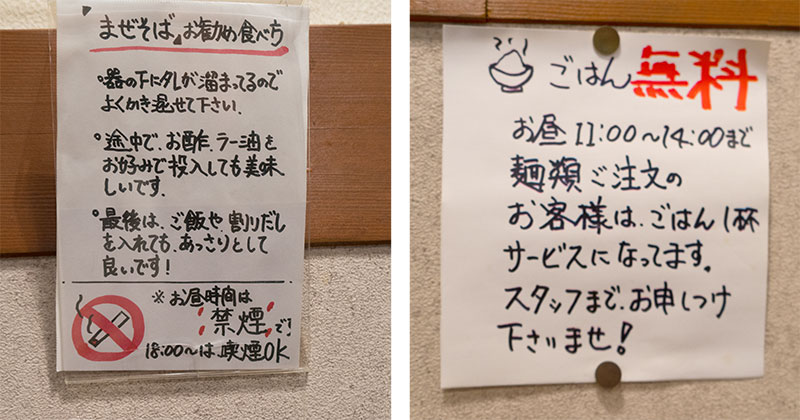 「まぜそば」お勧め食べ方
・器の下にタレが溜まってるので
よくかき混せて下さい.
・途中で、お酢、ラー油を
お好みで投入しても美味
しいです.
・最後は、ご飯や、割りだし
を入れても、あっさりとして
良いです!
※お昼時間は
禁煙です
18:00〜は、喫煙OK
ごはん無料
お昼11:00〜14:00まで
麺類ご注文の
お客様は、ごはん1杯
サービスになってます。
スタッフまで、お申しつけ
下さいませ!